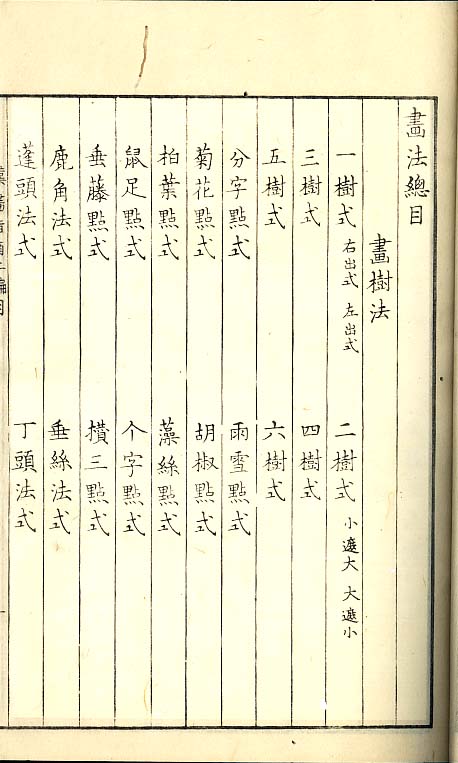 畫法總目
畫樹法
一樹式 右出式 左出式 二樹式 小遮大 大遮小
三樹式 四樹式
五樹式 六樹式
分字點式 雨雪點式
菊花點式 胡椒點式
柏葉點式 藻絲點式
鼠足點式 个字點式
垂藤點式 攅三點式
鹿角法式 垂絲法式
蓬頭法式 丁頭法式